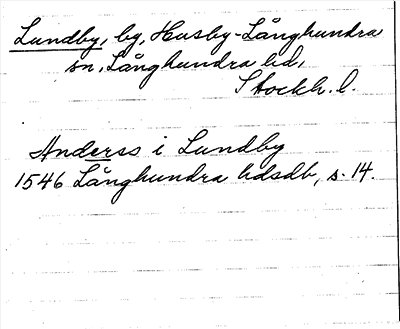 Lundby, by, Husby-Långhundra
sn, Långhundra hd,
Stockh. l.
Anderss i Lundby
1546 Långhundra hdsdb, s. 14.